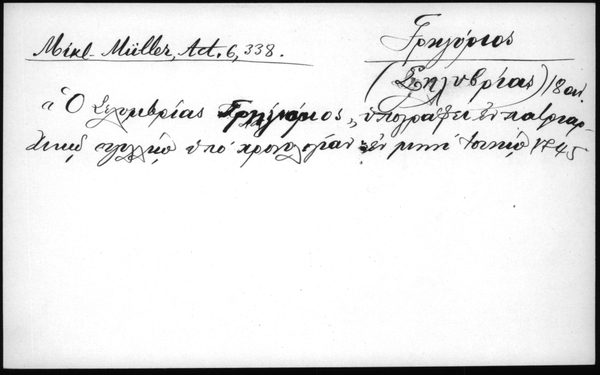 Mikl. Müller, Act. 6, 338.
Γρηγόριος
(Σηλυβρίας) 18 αι.
"Ὁ Σηλυμβρίας Γρηγόριος", ὑπογράφει ἐν πατριαρ-
χικῷ ὑπὸ χρονολογίαν ἐν μηνὶ Ἰουνίῳ 1745